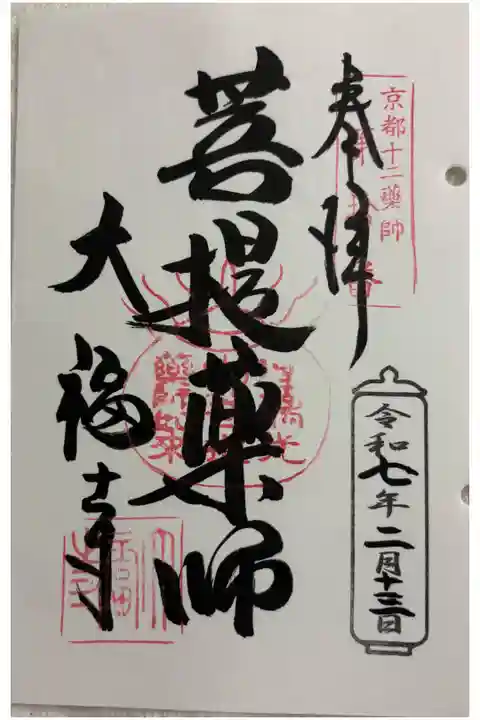 京都十二薬師
奉拝
令和七年二月十三日
菩提薬師
大福寺